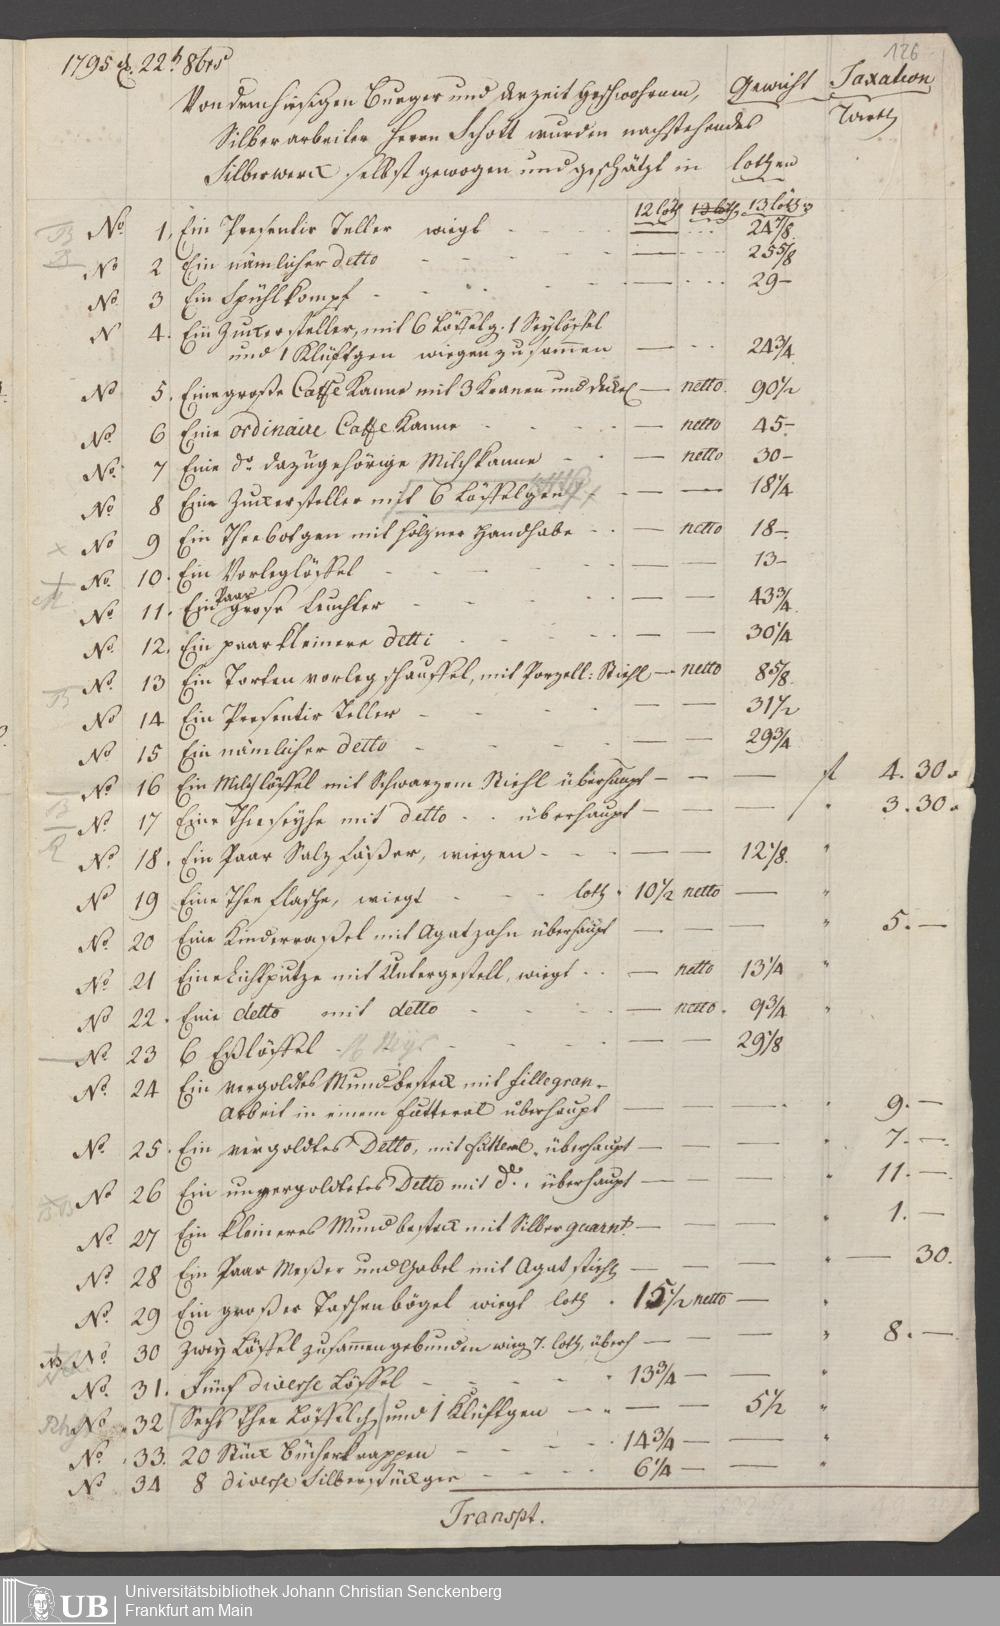 126
1795 d. 22t. 8brs
Von dem hiesigen Burger und derzeit Geschwornem, Gewicht Taxation
Silberarbeiter Herrn Schott wurden nachstehendes Werth
Silberwerck selbst gewogen und geschätzt in lothen
12 loth 13 loth 13 loth
No. 1. Ein Presentir Teller wiegt — 24 7/8.
No 2 Ein nämlicher detto — 25 5/8
No. 3 Ein Spühlkompf — 29 –
N 4. Ein Zuckersteller, mit 6 Löffelg. 1 Seylöffel
und 1 Klüftgen wiegen zusammen — 24 3/4
No 5. Eine große Caffe Kanne mit 3 Kranen und deckel — netto. 90 1/2
No. 6 Eine ordinaire Caffe Kanne — netto 45 –
No. 7 Eine do. dazugehörige Milchkanne — netto 30 –
No 8 Ein Zuckersteller mit 6 Löffelgen — — 18 1/4
x No 9 Ein Theebotgen mit hölzner Handhabe — netto 18 –
No. 10. Ein Vorleglöffel — — 13 –
No. 11. Ein Paar grose Leuchter — — 43 3/4
No. 12. Ein paar kleinere detti — — 30 1/4
No. 13 Ein Torten vorlegschauffel, mit Porzell: Stiehl — netto 8 5/8.
No 14 Ein Presentir Teller — — 31 1/2
No 15 Ein nämlicher detto — — 29 3/4
No 16 Ein Milchlöffel mit Schwarzem Stiehl überhaupt — — — fl 4. 30.
No. 17 Eine Theeseyhe mit detto . . überhaupt — — — " 3. 30.
No. 18. Ein Paar Salz Fäßer, wiegen — — 12 1/8. "
No 19 Eine Thee flasche, wiegt loth. 10 1/2 netto — "
No. 20 Eine Kinderraßel mit Agatzahn überhaupt — — — " 5. —
No 21 Eine Lichtputze mit Untergestell, wiegt . . — netto 13 1/4 "
No 22. Eine detto mit detto — netto. 9 3/4 "
No. 23 6 Eßlöffel — — 29 1/8
No. 24 Ein vergoldtes Mundbesteck mit fillegran-
Arbeit in einem futteral überhaupt — — — " 9. —
No. 25. Ein vergoldtes Detto, mit futteral. überhaupt — — — " 7. —
No 26 Ein unvergoldtetes Detto mit do. überhaupt — — — " 11. —
No. 27 Ein kleineres Mundbesteck mit Silber guarnt. — — — " 1. —
No. 28 Ein Paar Meßer und Gabel mit Agat stiehl — — — " — 30.
No. 29 Ein großer Taschenbögel wiegt loth . 15 1/2 netto — "
No. 30 Zwey Löffel zusammengebunden wieg 7. loth, überh — — — " 8. —
No. 31. Fünf diverse Löffel 13 3/4 — — "
No 32 Sechs Thee Löffelch und 1 Klüftgen — — 5 1/2 "
No . 33. 20 Stück Bücherkrappen 14 3/4 — — "
No 34 8 diverse Silberstückger 6 1/4 — — "
Transpt.
UB Universitätsbibliothek Johann Christian Senckenberg
Frankfurt am Main